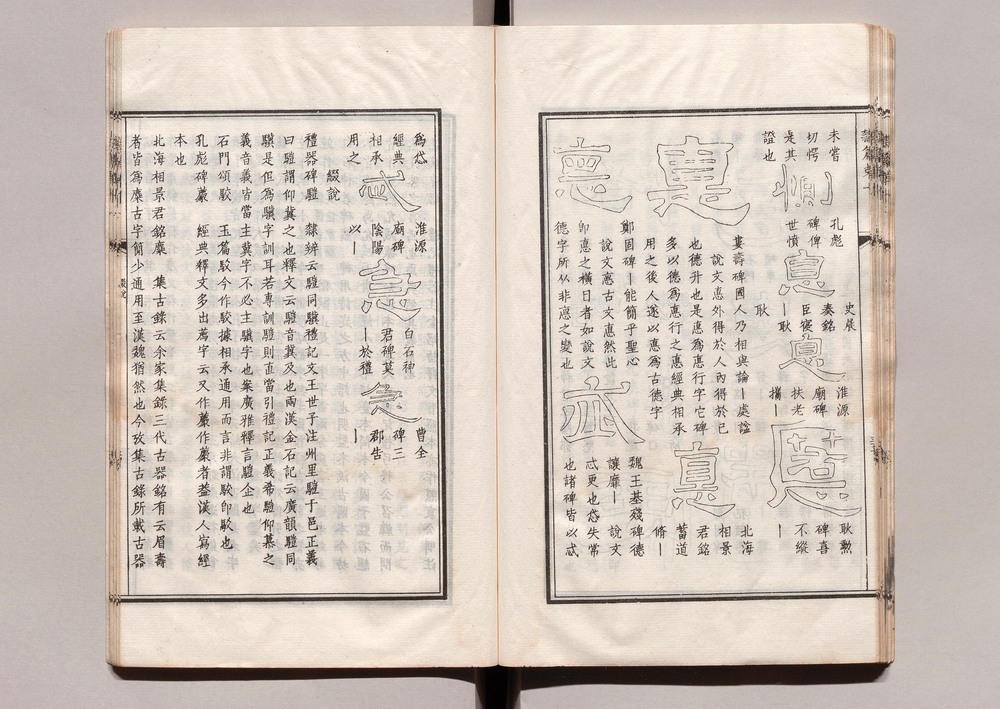 未嘗
切愕
是其
證也
惻
孔彪
碑俾
世憤
息
史晨
奏銘
臣寢
｜耿
耿
息
淮源
廟碑
扶老
攜｜
慝
耿勳
碑喜
不縱
｜
悳
婁壽碑國人乃相與論｜處謚
說文悳外得於人內得於已
也德升也是悳為悳行字它碑
多以德為悳行之悳經典相承
用之後人遂以悳為古德字
悳
北海
相景
君銘
蓄道
脩｜
悳
鄭固碑｜能簡乎聖心
說文悳古文悳然此
卽悳之橫目者如說文
德字所从非悳之變也
忒
魏王基殘碑德
讓靡｜　說文
忒更也岱失常
也諸碑皆以忒
為岱
經典
相承
用之
忒
淮源
廟碑
陰陽
以｜
急
白石神
君碑莫
｜於禮
急
曹全
碑三
郡告
｜
綴說
禮器碑驓　隸辨云驓同驥禮記文王世子注州里驓于邑正義
曰驓謂仰冀之也釋文云驓音冀及也兩漢金石記云廣韻驓同
驥是但為驥字訓耳若專訓驓則直當引禮記正義希驓仰慕之
義音義皆當主冀字不必主驥字也案廣雅釋言驓企也
石門頌駮　玉篇駮今作駁據相承通用而言非謂駮卽駁也
孔彪碑薦　經典釋文多出薦字云又作薦作薦者葢漢人寫經
本也
北海相景君銘麋　集古錄云余家集錄三代古器銘有云眉壽
者皆為麋古字簡少通用至漢魏猶然也今攷集古錄所載古器